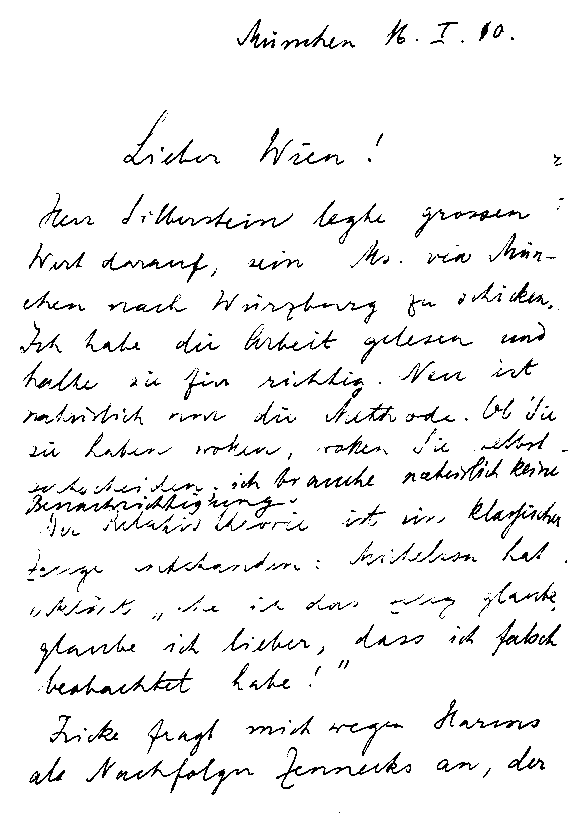 München 16. I. 10.
Lieber Wien!
Herr Silberstein legte grossen
Wert darauf, sein Ms. via Mün-
chen nach Würzburg zu schicken.
Ich habe die Arbeit gelesen und
halte sie für richtig. Neu ist
natürlich nur die Methode. Ob Sie
sie haben wollen, wollen Sie selbst
entscheiden. ich brauche natürlich keine
Benachrichtigung.
Der Relativtheorie ist ein klassischer
Zeuge entstanden: Michelson hat
erklärt „ehe ich das glaube,
glaube ich lieber, dass ich falsch
beobachtet habe!"
Fricke fragt mich wegen Harms
als Nachfolger Zennecks an, der